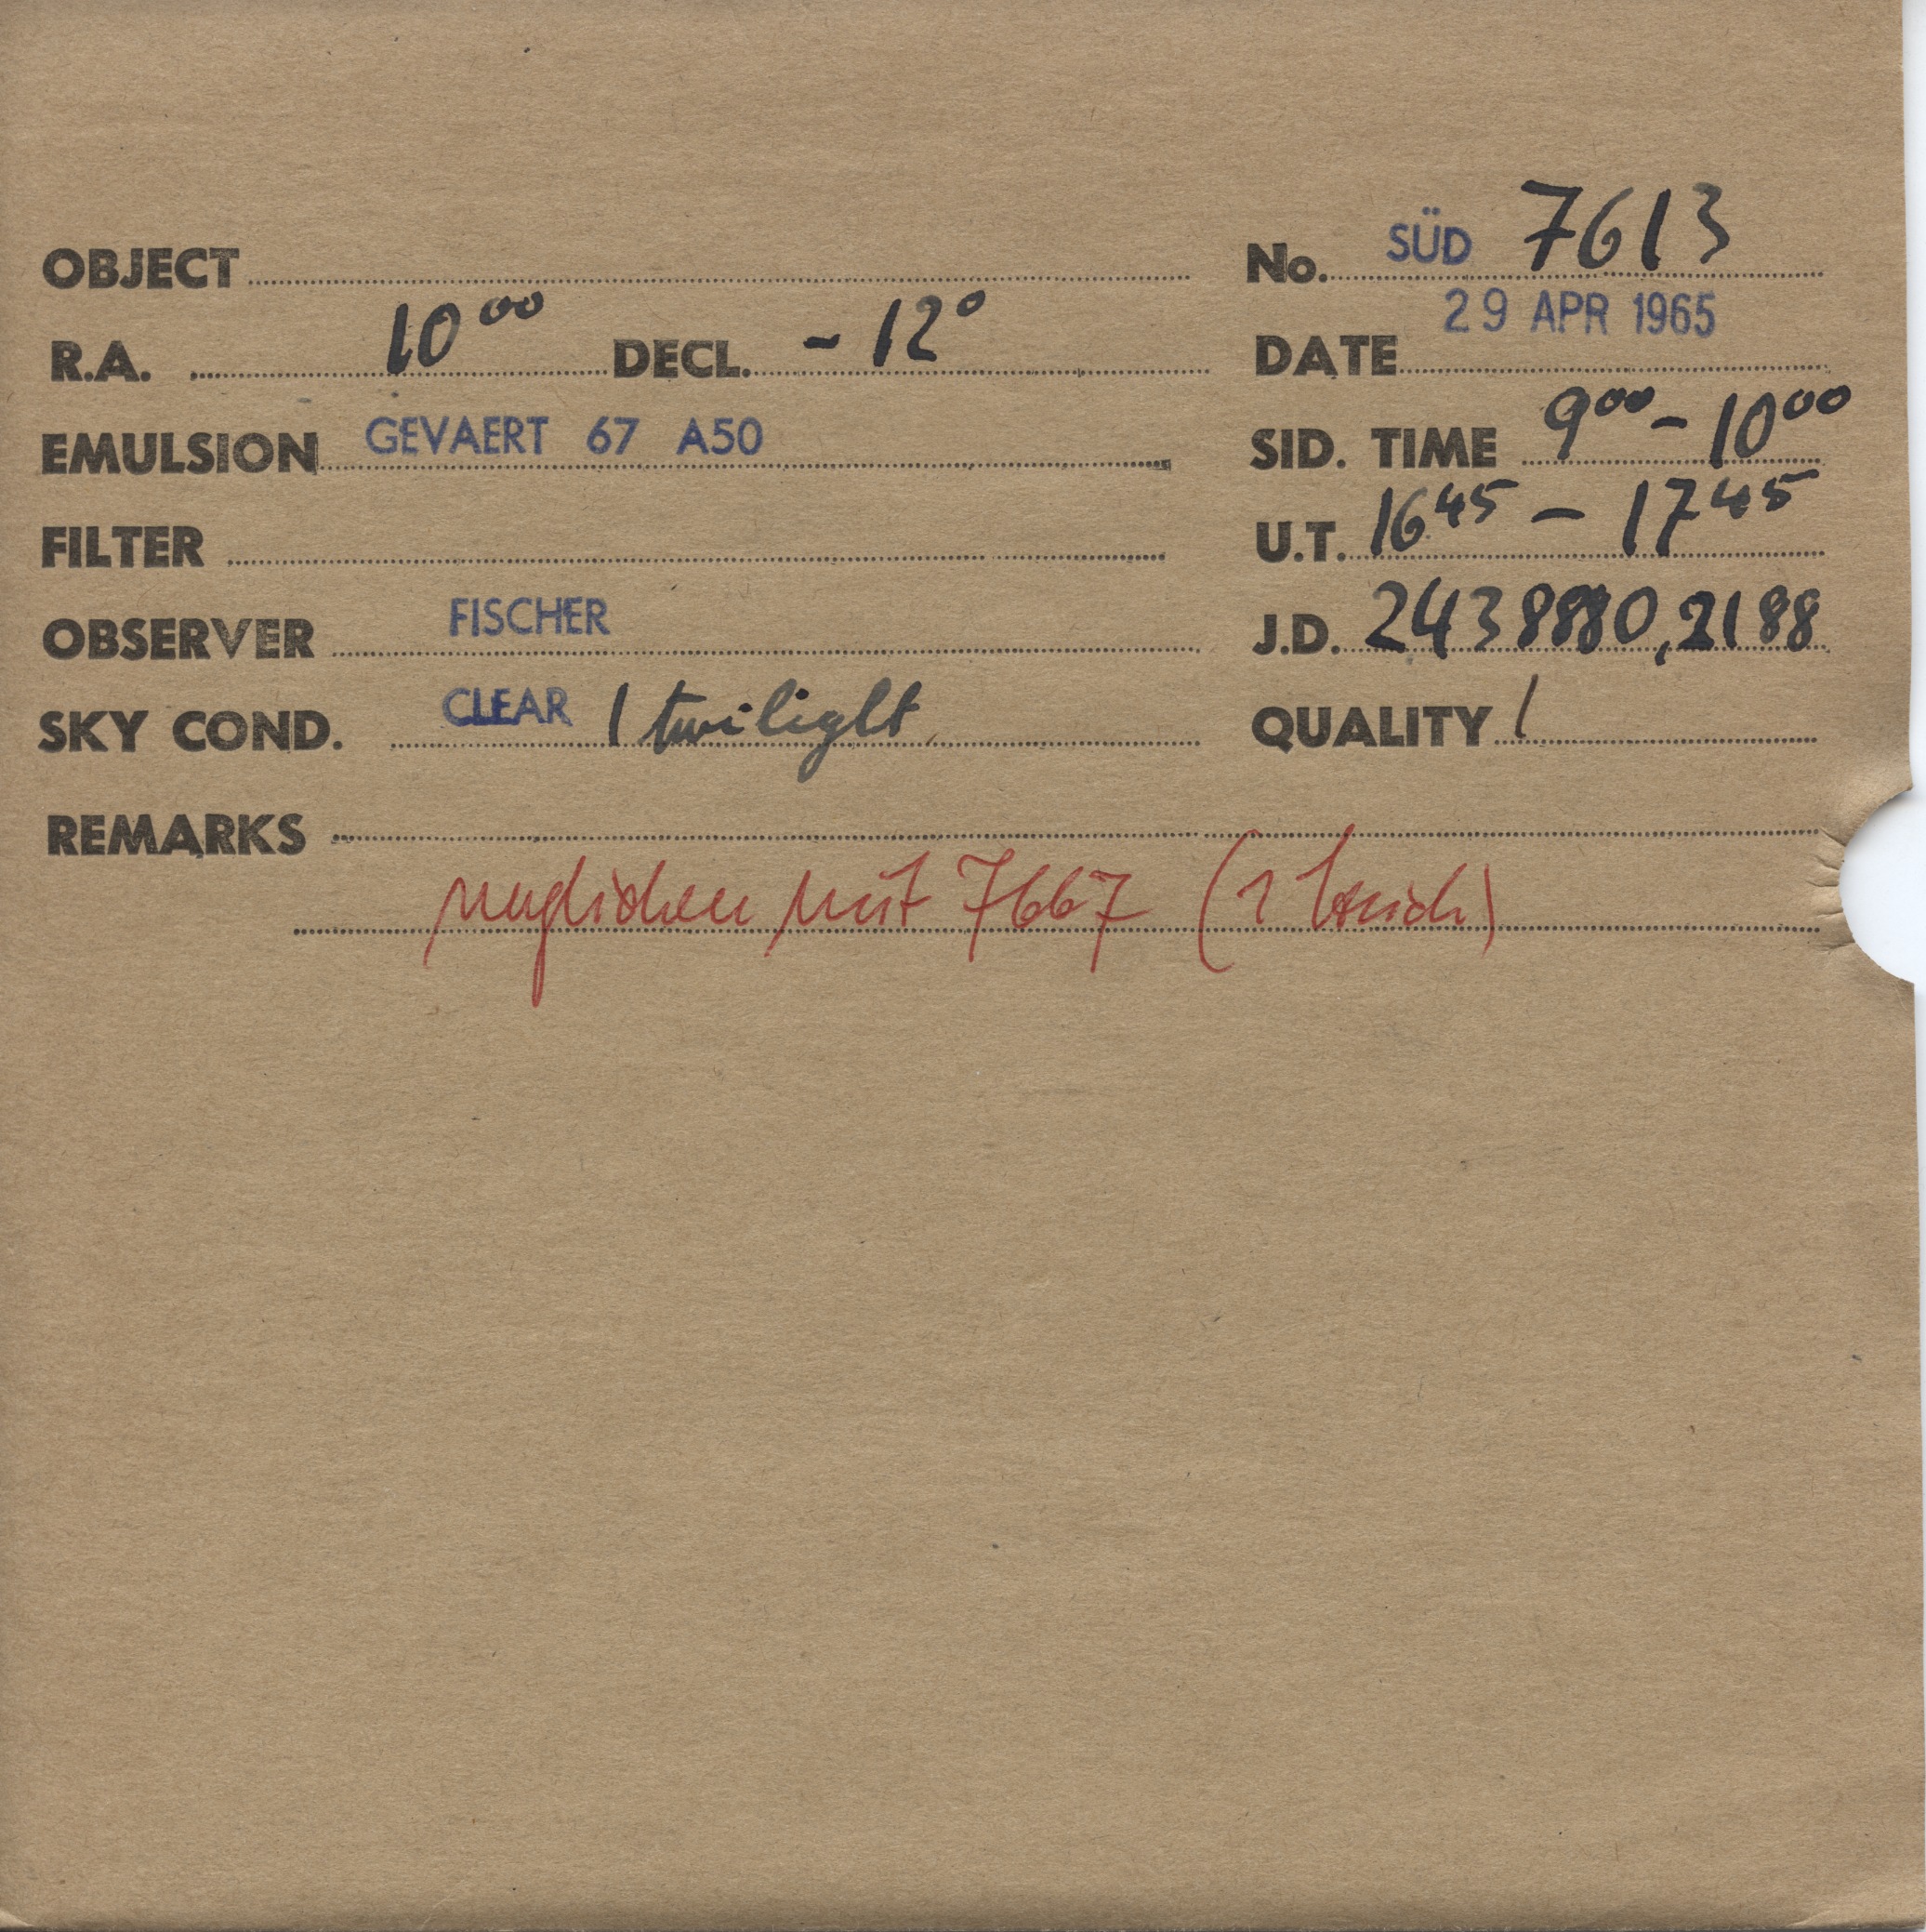 OBJECT No. SÜD 7613
R.A. 10 00 DECL. - 12° DATE 29 APR 1965
EMULSION GEVAERT 67 A50 SID. TIME 9 00 - 10 00
FILTER U.T. 16 45 - 17 45
OBSERVER FISCHER J.D. 2438880,2188
SKY COND. CLEAR / twilight QUALITY 1
REMARKS
verglichen mit 7667 (1